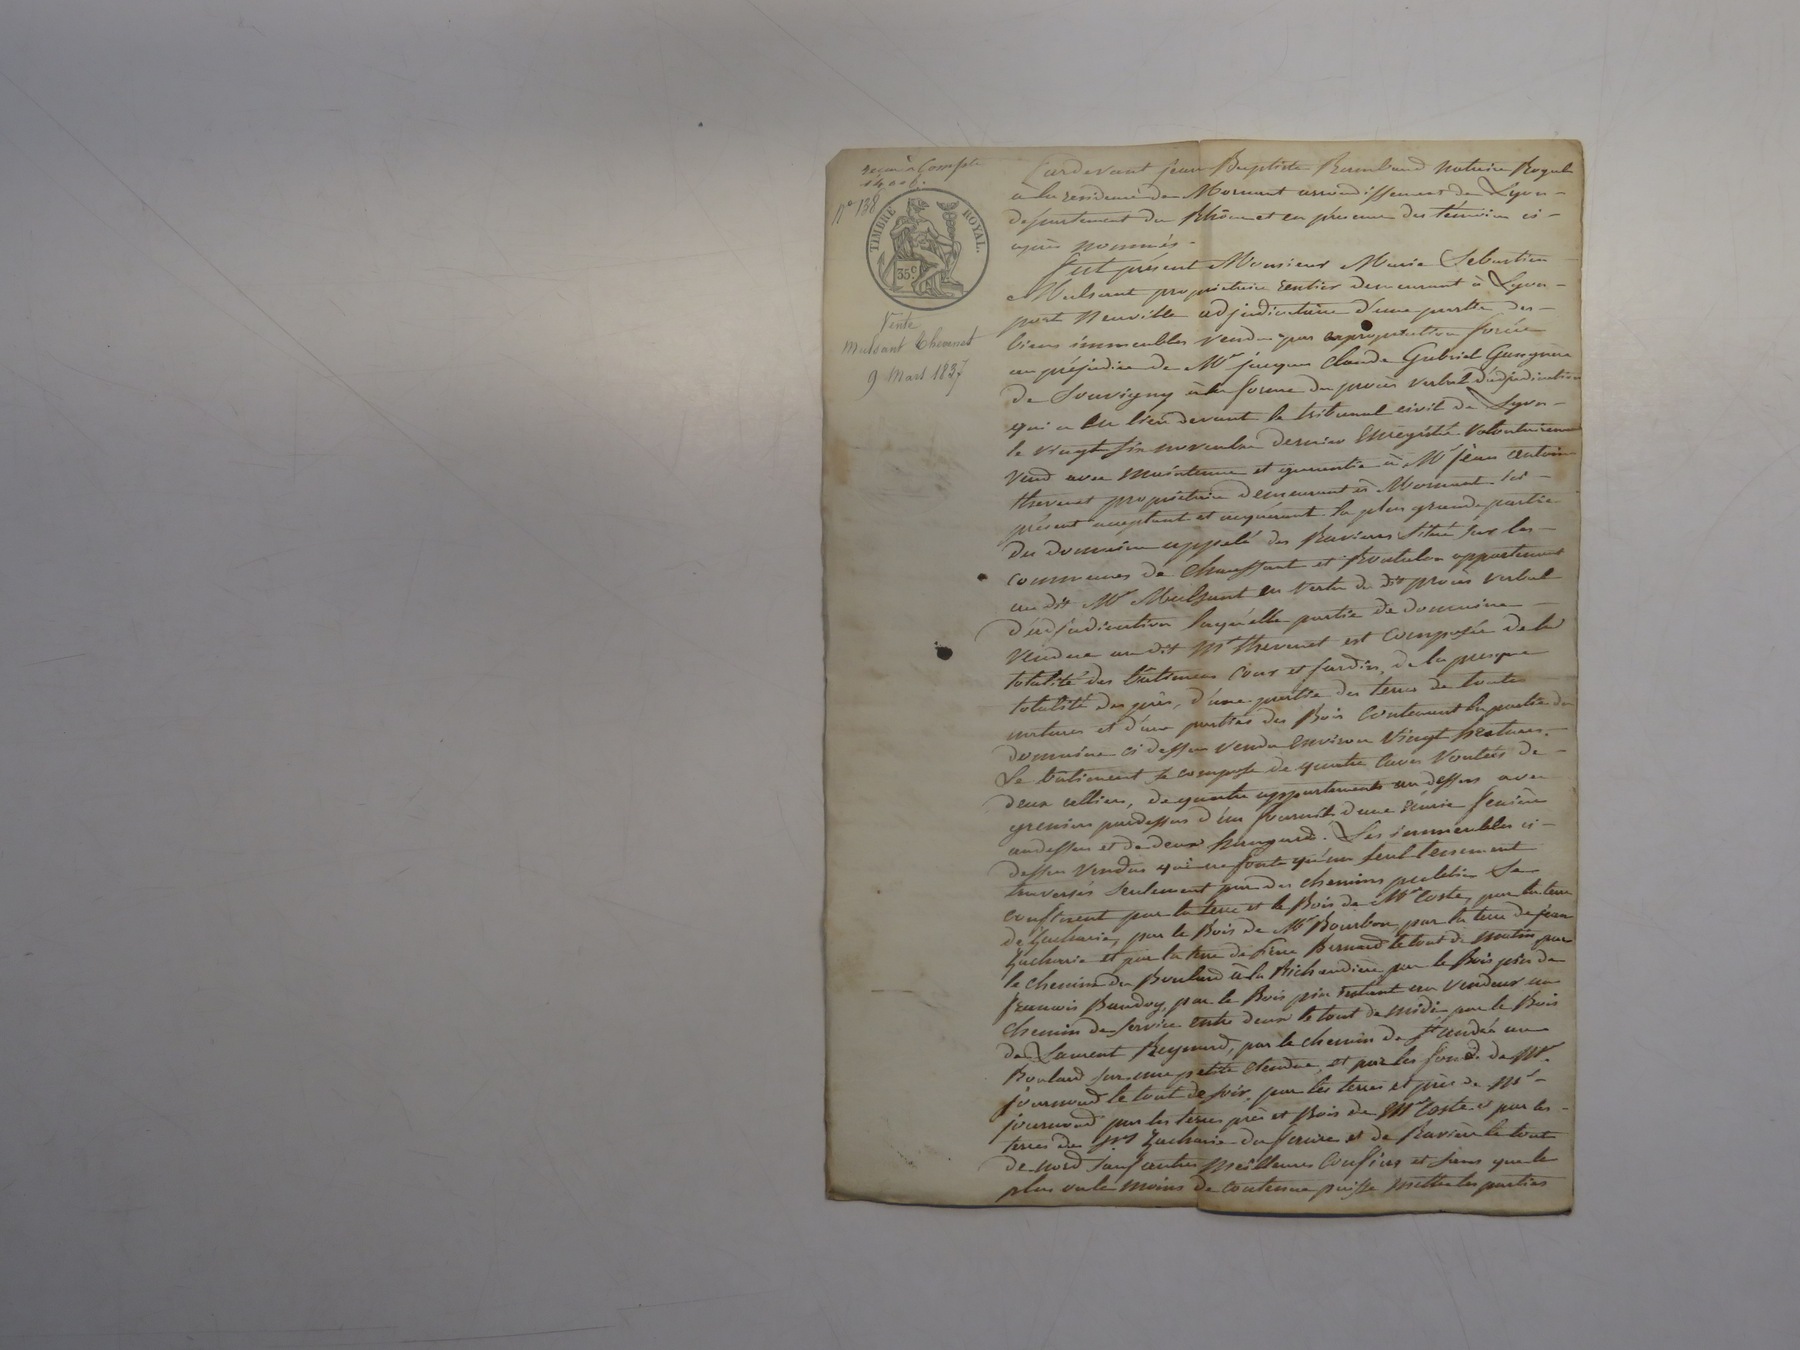 reçu à Compte
N° 138
TIMBRE ROYAL.
35c
Vente
Mulsant Thevenet
9 Mars 1837
Pardevant Jean Baptiste Rambaud notaire Royal
a la residence de Mornant arrondissement de Lyon
departement du Rhône et en présence des témoins ci
après nommés.
fut présent Monsieur Marie Sebastien
Mulsant propriétaire rentier demeurant à Lyon
port Neuville adjudicataire d'une partie des
biens immeubles vendus par expropriation forcée
au préjudice de Mr jacques Claude Gabriel
de Souvigny à la forme du procès verbal d'adjudication
qui a eu lieu devant le tribunal civil de Lyon
le vingt six novembre dernier Enregistré volontairement
vend avec maintenue et garantie à Mr jean antoine
thevenet propriétaire demeurant à Mornant ici
présent acceptant et acquérant la plus grande partie
du domaine appelé des Ravieres situé sur les
communes de Chaussant et Rontalon appartenant
au dit Mr Mulsant en vertu du dit procès verbal
d'adjudication laquelle partie de domaine
vendue au dit Mr thevenet est composée de la
totalité des bâtimens cour et jardin, de la presque
totalité des près, d'une partie des terres de toute
natures et d'une parties des Bois contenant la partie du
domaine ci dessus vendu environ vingt hectares.
Le bâtiment se compose de quatre caves voutées de
deux celliers, de quatre appartements au dessus avec
greniers pardessus d'un fournil d'une Ecurie feniére
au dessus et de deux hangard. Les immeubles ci
dessus vendus qui ne font qu'un seul tenement
traversés seulement par des chemins publics se
confinent par la terre et le Bois de Mr Coste, par la terre
de Zacharie, par le Bois de Mr Bourbon, par la terre de jean
Zacharie et par la terre de Pierre Bernard le tout de matin par
le chemin du Boulard à la Richaudière par le Bois pin de
francois Baudoy, par le Bois pin restant au vendeur un
chemin de service entre deux le tout de midi par le Bois
de Laurent Reynard, par le chemin de St andré au
Boulard sur une petite étendue, et par les fonds de Mr
journoud le tout de soir, par les terres et près de Mr
journoud par les terres près et Bois de Mr Coste et par les
terres des Zacharie du et de Raviére le tout
de nord sauf autres meilleures confins et sans que le
plus ou le moins de contenue puisse mettre les parties